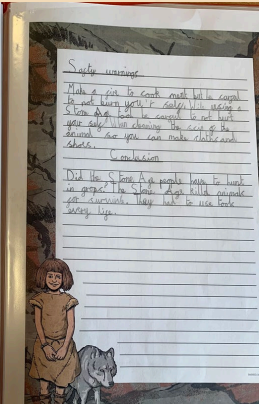 Safty warnings
Make a fire to cook meat but be careful
to not burn your self. While using a
Stone Age tool be careful to not hurt
your self. When cleaning the skin of the
animal so you can make cloths and
shoes.
Conclusion
Did the Stone Age people have to hunt
in grops. The Stone Age killd animals
for survival. They had to use tools
every